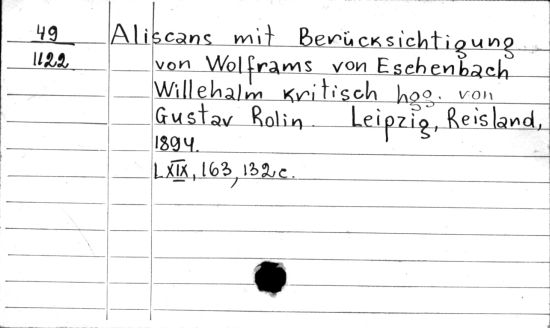 49 Aliscans mit Berücksichtigung
1122 von Wolframs von Eschenbach
Willehalm kritisch hgg. von
Gustav Rolin Leipzig, Reisland,
1894.
LXIX, 163, 132 c.